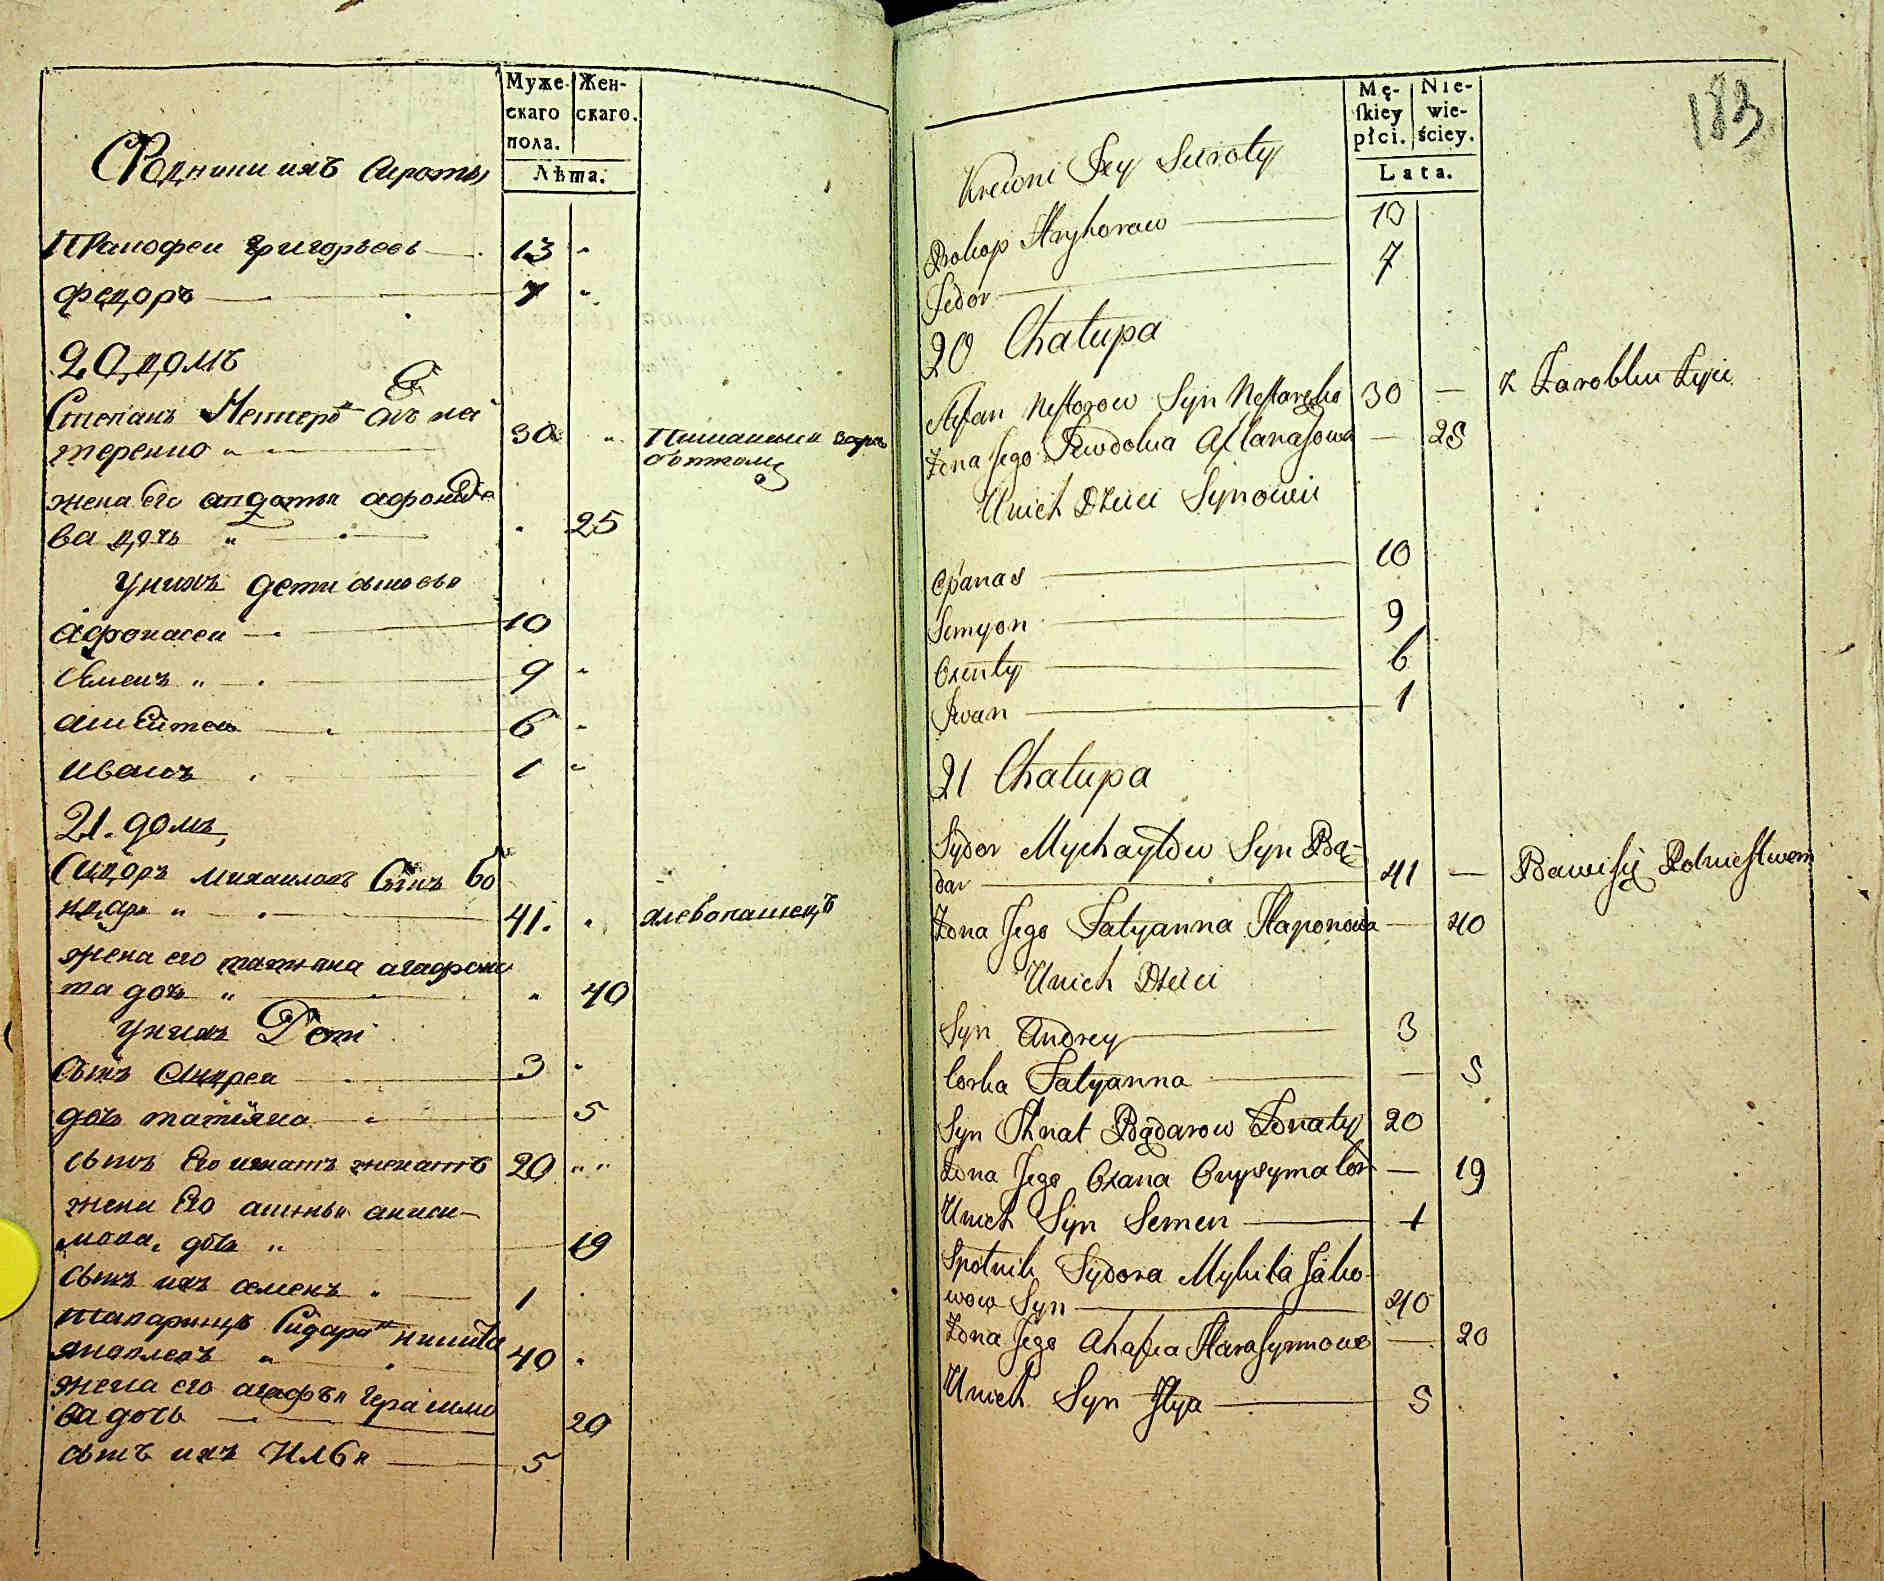 Муже-
скаго
пола.
Жен-
скаго.
Лѣта.
Сродники ихъ сироты
Прокофеи Григорьевъ 13 "
Федоръ 7 "
20 домъ
Степанъ Нестеровъ сынъ не
теренко " 30 " Питаетьца зара
боткомъ
жена его авдотья афонасье
ва дочь " " 25
У нихъ дети сыновья
Афонасеи 10
Семенъ " 9 "
6 "
Иванъ 1 "
21. домъ,
Сидоръ михаиловъ сынъ бо
ндарь " 41. " хлебопашецъ
жена его татьяна агафоно
ва дочь " " 40
У нихъ Дети
Сынъ Андреи 3 "
дочь татіяна 5
сынъ его игнатъ женатъ 20 " "
жена его аксинья аниси-
мова, дочь " 19
сынъ ихъ семенъ " 1
товарищъ Сидора никита
яковлевъ " 40 "
жена его агафья герасимо
ва дочь 20
сынъ ихъ Илья 5
Mę-
ſkiey
płci.
Nie-
wie-
ściey.
Lata.
183
Krewni Jey Siroty
Prokop Hryhorow 10
Fedor 7
20 Chałupa
Stefan Nestorow Syn Nestoręko 30 — z Zarobku Żyie
Żona Jego Jewdokia Afanasowa — 25
U nich Dzieci Synowie
Opanas 10
Semyon 9
Oxenty 6
Jwan 1
21 Chałupa
Sydor Mychayłow Syn Bą-
dar 41 — Bawi się Rolnictwem
Żona Jego Tatyanna Haponowa — 40
U nich Dzieci
Syn Andrey 3
Corka Tatyanna — 5
Syn Ihnat Bądarow Żonaty 20
Żona Jego Oxana Onysyma Cor — 19
U nich Syn Semen 1
Spolnik Sydora Mykita Jako-
wow Syn 40
Żona Jego Ahafia Harasymowa — 20
U nich Syn Jlya 5